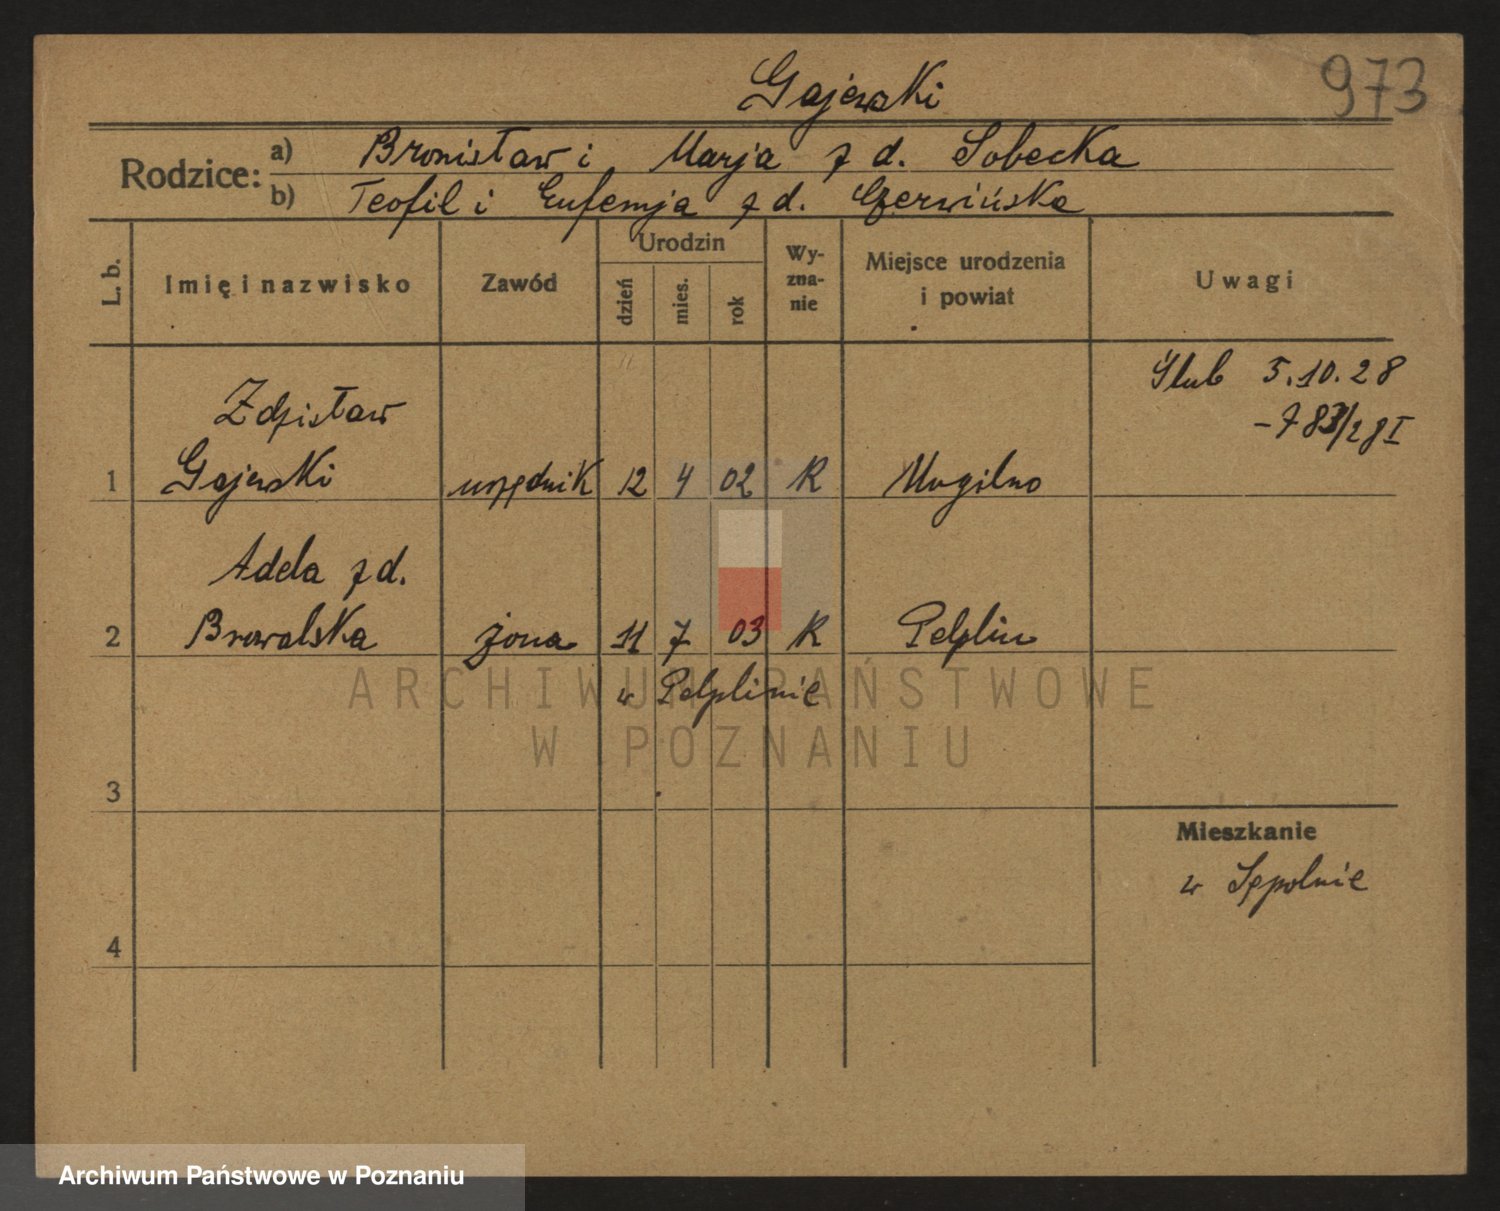 Gajewski
973
Rodzice:
a) Bronisław i Marja z d. Sobecka
b) Teofil i Eufemja z d. Czerwińska
L. b.
Imię i nazwisko
Zawód
Urodzin
dzień
mies.
rok
Wy-
zna-
nie
Miejsce urodzenia
i powiat
Uwagi
Ślub 5.10.28
- 783/28 I
Zdzisław
1 Gajewski urzędnik 12 4 02 R Mogilno
Adela z d.
2 Browalska żona 11 7 03 R Pelplin
w Pelplinie
ARCHIWUM PAŃSTWOWE
W POZNANIU
3
Mieszkanie
w Sępolnie
4
Archiwum Państwowe w Poznaniu